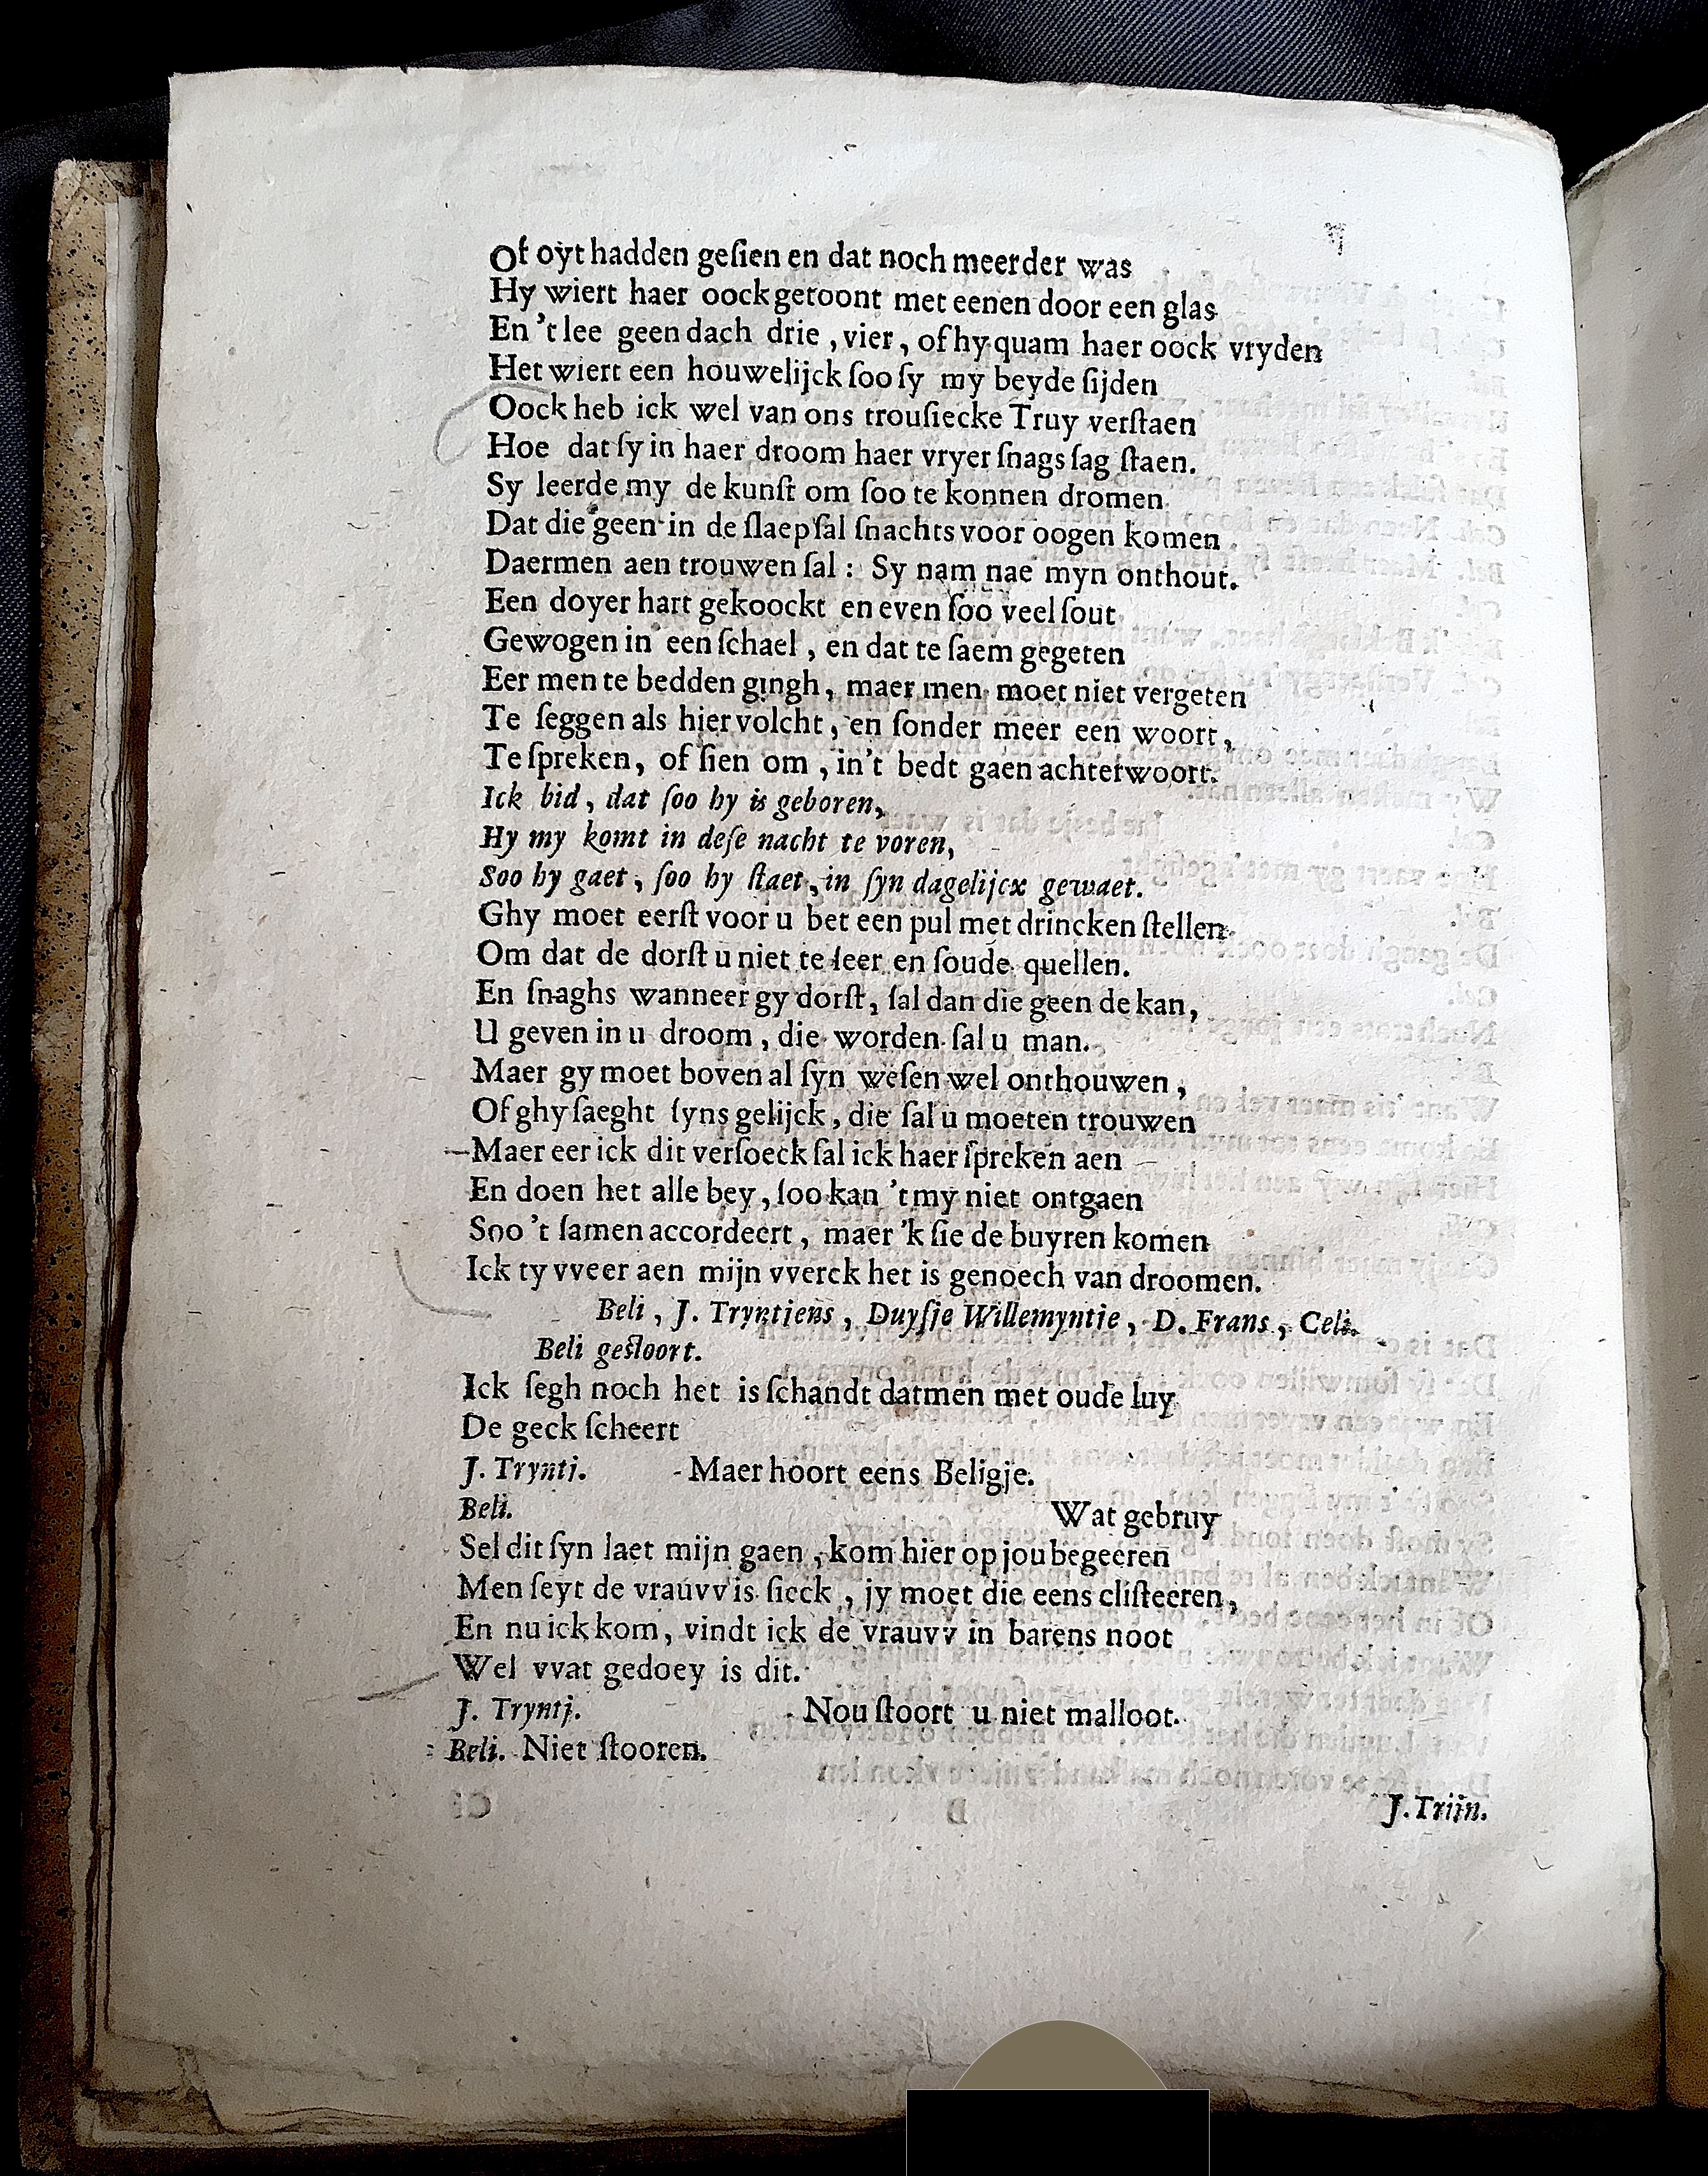 Of oyt hadden geſien en dat noch meerder was
Hy wiert haer oock getoont met eenen door een glas
En 't lee geen dach drie , vier , of hy quam haer oock vryden
Het wiert een houwelijck ſoo ſy my beyde ſijden
Oock heb ick wel van ons trouſiecke Truy verſtaen
Hoe dat ſy in haer droom haer vryer ſnags ſag ſtaen.
Sy leerde my de kunſt om ſoo te konnen dromen
Dat die geen in de ſlaep ſal ſnachts voor oogen komen
Daermen aen trouwen ſal : Sy nam nae myn onthout.
Een doyer hart gekoockt en even ſoo veel ſout
Gewogen in een ſchael , en dat te ſaem gegeten
Eer men te bedden gingh , maer men moet niet vergeten
Te ſeggen als hier volcht , en ſonder meer een woort ,
Te ſpreken, of ſien om , in't bedt gaen achterwoort.
Ick bid , dat ſoo hy is geboren,
Hy my komt in deſe nacht te voren,
Soo hy gaet , ſoo hy ſtaet , in ſyn dagelijcx gewaet.
Ghy moet eerſt voor u bet een pul met drincken ſtellen
Om dat de dorſt u niet te ſeer en ſoude quellen.
En ſnaghs wanneer gy dorſt , ſal dan die geen de kan,
U geven in u droom , die worden ſal u man.
Maer gy moet boven al ſyn weſen wel onthouwen ,
Of ghy ſaeght ſyns gelijck , die ſal u moeten trouwen
Maer eer ick dit verſoeck ſal ick haer ſpreken aen
En doen het alle bey , ſoo kan 't my niet ontgaen
Soo 't ſamen accordeert , maer 'k ſie de buyren komen
Ick ty vveer aen mijn vverck het is genoech van droomen.
Beli , J. Tryntiens , Duyſje Willemyntie , D. Frans , Celi.
Beli geſtoort.
Ick ſegh noch het is ſchandt datmen met oude luy
De geck ſcheert
J. Trynti. Maer hoort eens Beligje.
Beli. Wat gebruy
Sel dit ſyn laet mijn gaen , kom hier op jou begeeren
Men ſeyt de vrauvv is ſieck , jy moet die eens cliſteeren,
En nu ick kom , vindt ick de vrauvv in barens noot
Wel vvat gedoey is dit.
J. Tryntj. Nou ſtoort u niet malloot.
Beli. Niet ſtooren.
J. Triin.